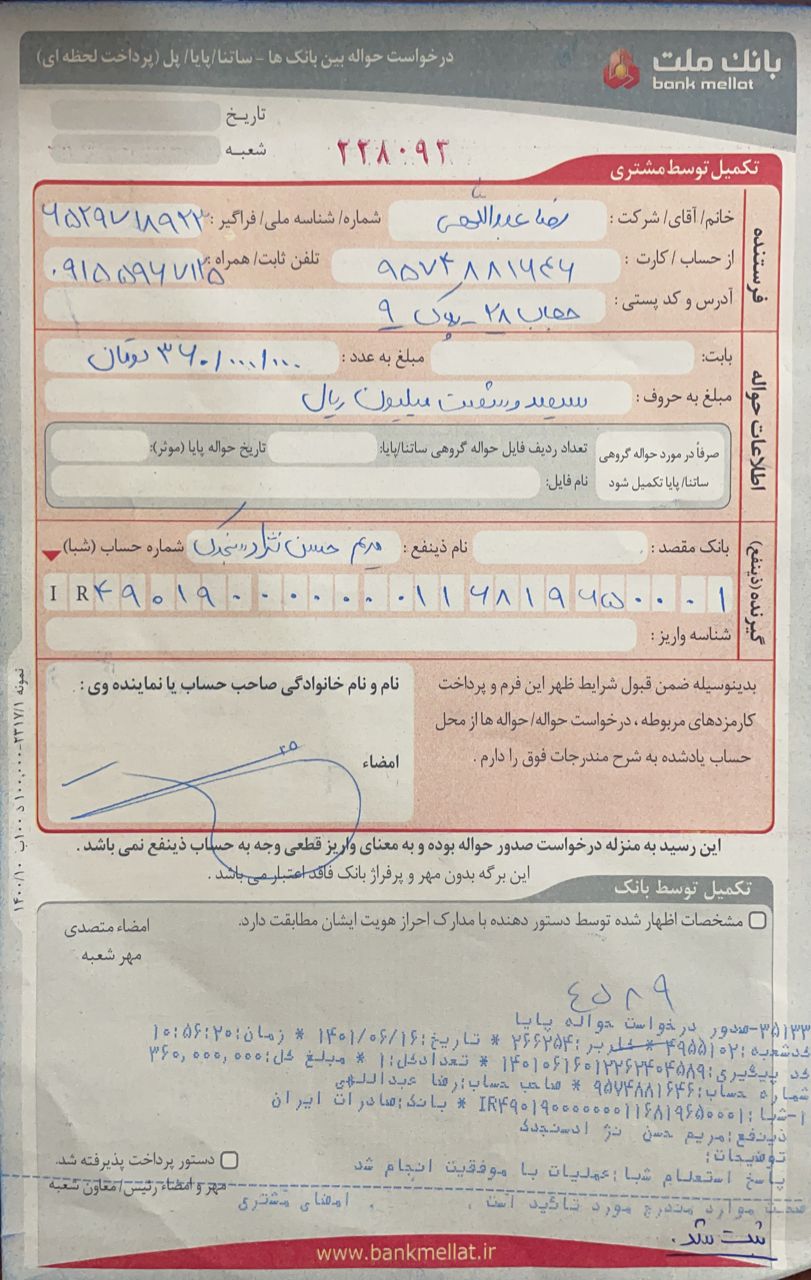 بانک ملت
bank mellat
درخواست حواله بین بانک ها - ساتنا/پایا/ پل (پرداخت لحظه ای)
تاریخ
شعبه
۲۲۸۰۹۳
تکمیل توسط مشتری
فرستنده
خانم/ آقای/ شرکت : رضا عبداللهی شماره/ شناسه ملی/ فراگیر :
از حساب / کارت : ۹۵۷۴۸۸۱۶۴۶ تلفن ثابت/ همراه :
آدرس و کد پستی : حجاب ۲۸ - پلاک ۹
اطلاعات حواله
بابت: مبلغ به عدد : ۳۶۰/۰۰۰/۰۰۰ تومان
مبلغ به حروف : سیصد و شصت میلیون ریال
صرفاً در مورد حواله گروهی ساتنا/ پایا تکمیل شود
تعداد ردیف فایل حواله گروهی ساتنا/پایا: تاریخ حواله پایا (موثر):
نام فایل:
گیرنده (ذینفع)
بانک مقصد : نام ذینفع : مریم حسن نژاد سنجدک شماره حساب (شبا)
IR ۴۹۰۱۹۰۰۰۰۰۰۰۱۱۶۸۱۹۶۵۰۰۰۱
شناسه واریز :
بدینوسیله ضمن قبول شرایط ظهر این فرم و پرداخت
کارمزدهای مربوطه ، درخواست حواله/ حواله ها از محل
حساب یادشده به شرح مندرجات فوق را دارم .
نام و نام خانوادگی صاحب حساب یا نماینده وی :
امضاء
این رسید به منزله درخواست صدور حواله بوده و به معنای واریز قطعی وجه به حساب ذینفع نمی باشد .
این برگه بدون مهر و پرفراژ بانک فاقد اعتبار می باشد .
تکمیل توسط بانک
مشخصات اظهار شده توسط دستور دهنده با مدارک احراز هویت ایشان مطابقت دارد.
امضاء متصدی
مهر شعبه
۴۵۸۹
۳۵۱۳۳-صدور درخواست حواله پایا
کدشعبه:۴۹۵۵۱۰۲ * کاربر:۲۶۶۲۵۴ * تاریخ:۱۴۰۱/۰۶/۱۶ * زمان:۱۰:۵۶:۲۰
کد پیگیری:۱۴۰۱۰۶۱۶۰۱۲۲۶۲۴۰۴۵۸۹ * تعدادکل:۱ * مبلغ کل:۳۶۰,۰۰۰,۰۰۰
شماره حساب:۹۵۷۴۸۸۱۶۴۶ * صاحب حساب:رضا عبداللهی
۱-شبا:IR۴۹۰۱۹۰۰۰۰۰۰۰۱۱۶۸۱۹۶۵۰۰۰۱ * بانک:صادرات ایران
ذینفع:مریم حسن نژ ادسنجدک
توضیحات:
پاسخ استعلام شبا:عملیات با موفقیت انجام شد
صحت موارد مندرج مورد تائید است . امضای مشتری
دستور پرداخت پذیرفته شد.
مهر و امضاء رئیس/ معاون شعبه
ثبت شد.
www.bankmellat.ir